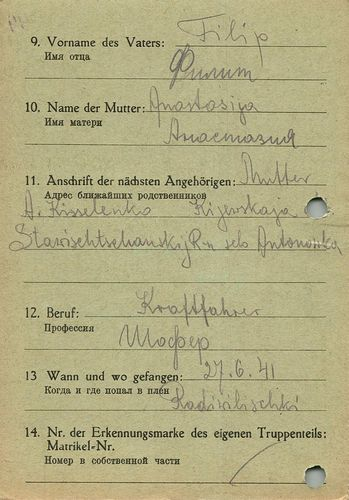 9. Vorname des Vaters: Filip
Имя отца
Филип
10. Name der Mutter: Anastasiya
Имя матери
Анастазия
11. Anschrift der nächsten Angehörigen: Mutter
Адрес ближайших родственников
A. Kisselenko Kijewskaja
Stawischtschanskij R-n selo Antonowka
12. Beruf: Kraftfahrer
Профессия
Шофер
13 Wann und wo gefangen: 27.6.41
Когда и где попал в плен
Radiwilischki
14. Nr. der Erkennungsmarke des eigenen Truppenteils:
Matrikel-Nr.
Номер в собственной части